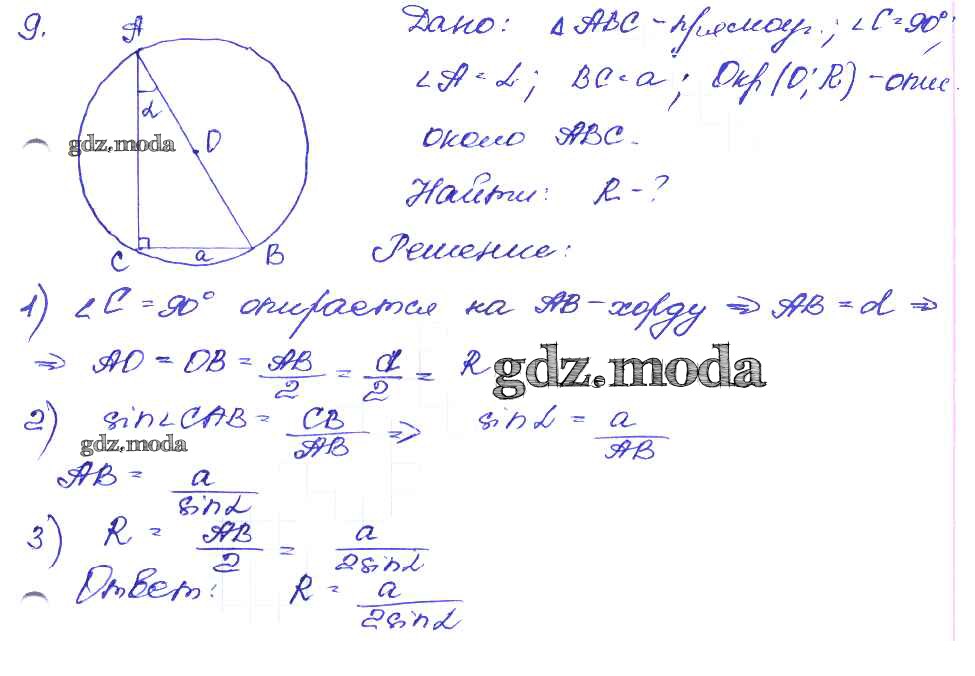 9.
Дано: △ ABC - прямоуг.; ∠C = 90°;
∠A = α; BC = a; Окр(O; R) - опис.
около ABC.
Найти: R - ?
Решение:
A
α
O
C
a
B
gdz.moda
1) ∠C = 90° опирается на AB - хорду ⇒ AB = d ⇒
⇒ AO = OB = AB/2 = d/2 = R
gdz.moda
2) sin∠CAB = CB/AB ⇒ sinα = a/AB
gdz.moda
AB = a/sinα
3) R = AB/2 = a/2sinα
Ответ: R = a/2sinα